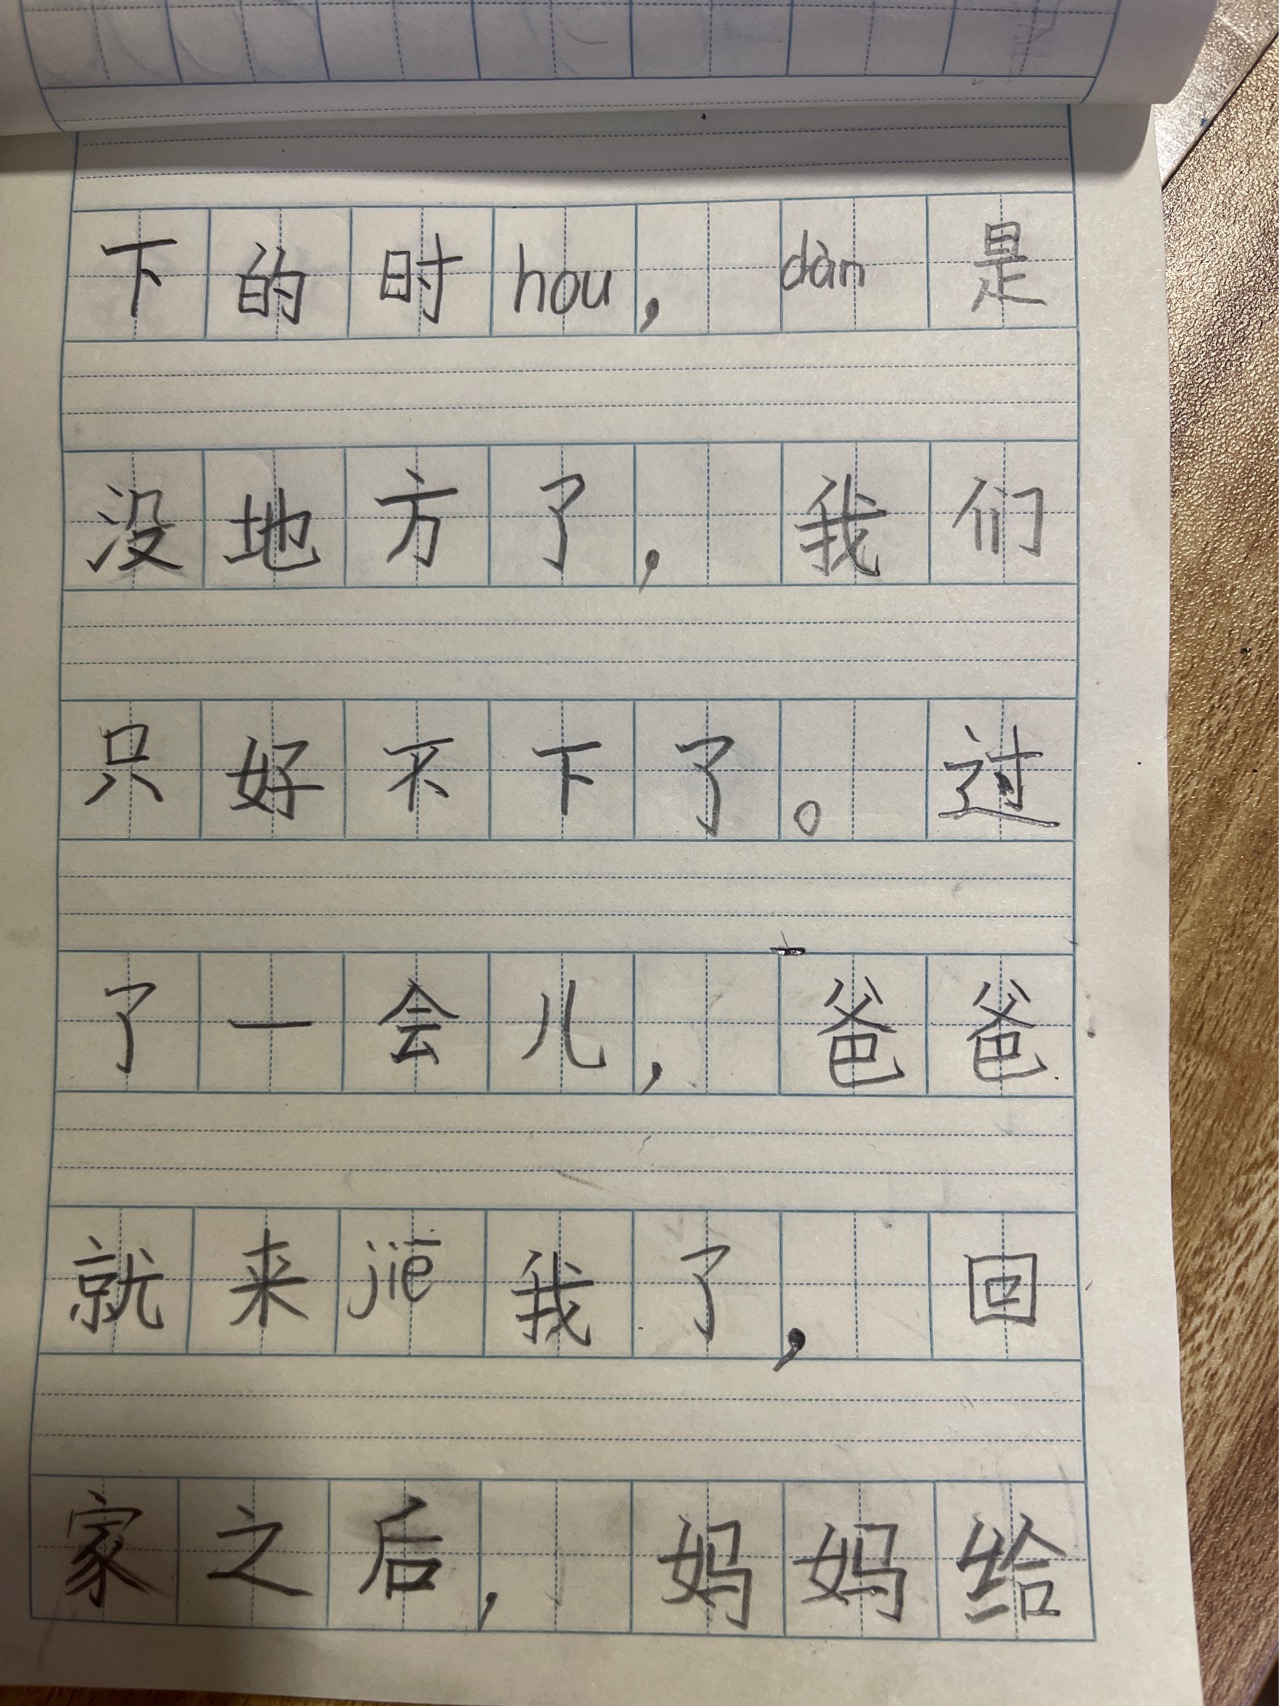 下的时hou，dàn是
没地方了，我们
只好不下了。过
了一会儿，爸爸
就来jiē我了，回
家之后，妈妈给